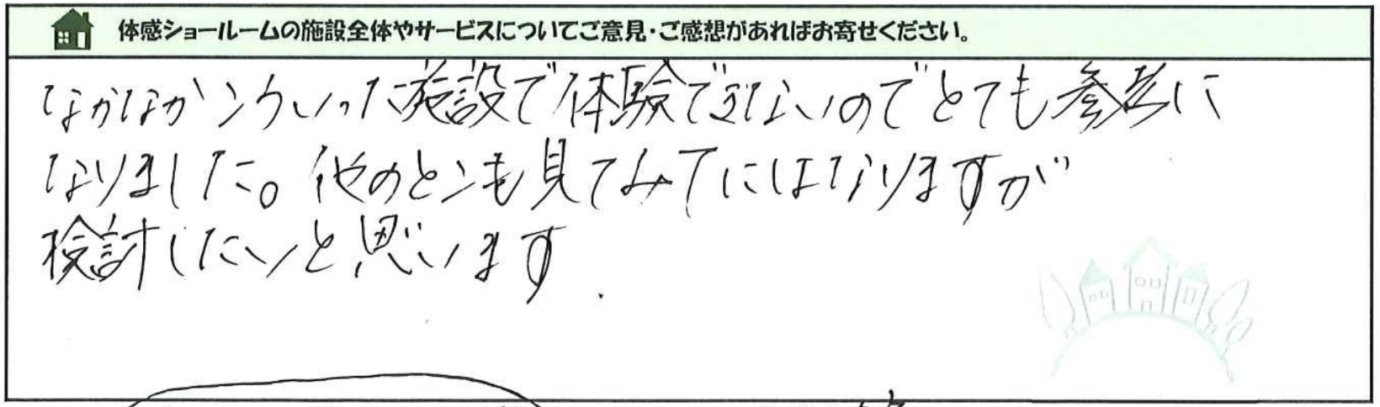 体感ショールームの施設全体やサービスについてご意見・ご感想があればお寄せください。
なかなかこういった施設で体験できないのでとても参考に
なりました。他のところも見てみてにはなりますが
検討したいと思います